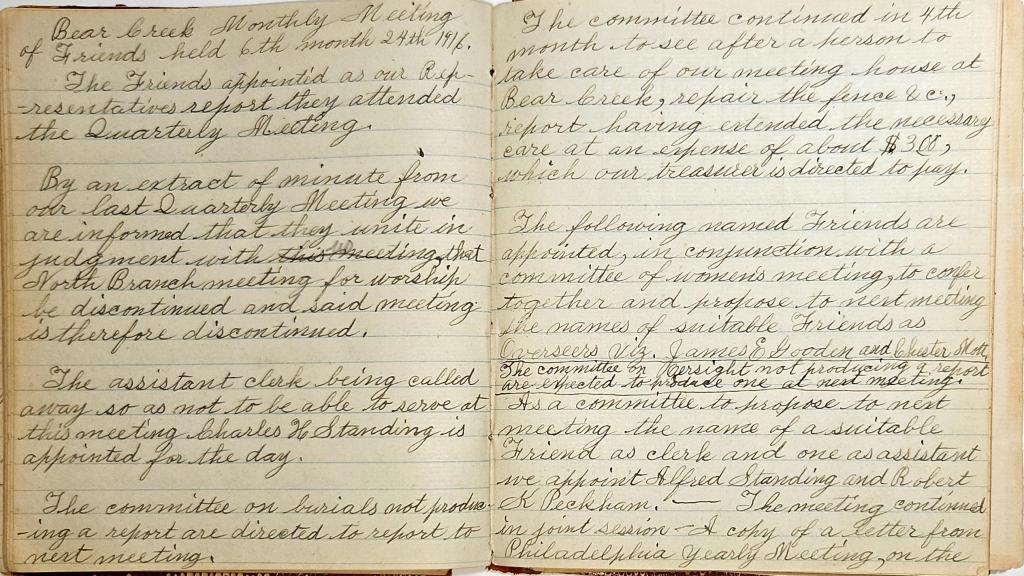 Bear Creek Monthly Meeting
of Friends held 6th month 24th 1916.
The Friends appointed as our Rep-
-resentatives report they attended
the Quarterly Meeting.
By an extract of minute from
our last Quarterly Meeting we
are informed that they unite in
judgment with this meeting, that
North Branch meeting for worship
be discontinued and said meeting
is therefore discontinued.
The assistant clerk being called
away so as not to be able to serve at
this meeting Charles H Standing is
appointed for the day.
The committee on burials not produc-
-ing a report are directed to report to
next meeting.
The committee continued in 4th
month to see after a person to
take care of our meeting house at
Bear Creek, repair the fence &c.,
report having extended the necessary
care at an expense of about $3.00,
which our treasurer is directed to pay.
The following named Friends are
appointed, in conjunction with a
committee of womens meeting, to confer
together and propose to next meeting
the names of suitable Friends as
Overseers viz. James E Gooden and Chester Mott
The committee on Oversight not producing a report
are expected to produce one at next meeting.
As a committee to propose to next
meeting the name of a suitable
Friend as clerk and one as assistant
we appoint Alfred Standing and Robert
K Peckham. — The meeting continued
in joint session – A copy of a letter from
Philadelphia Yearly Meeting, on the